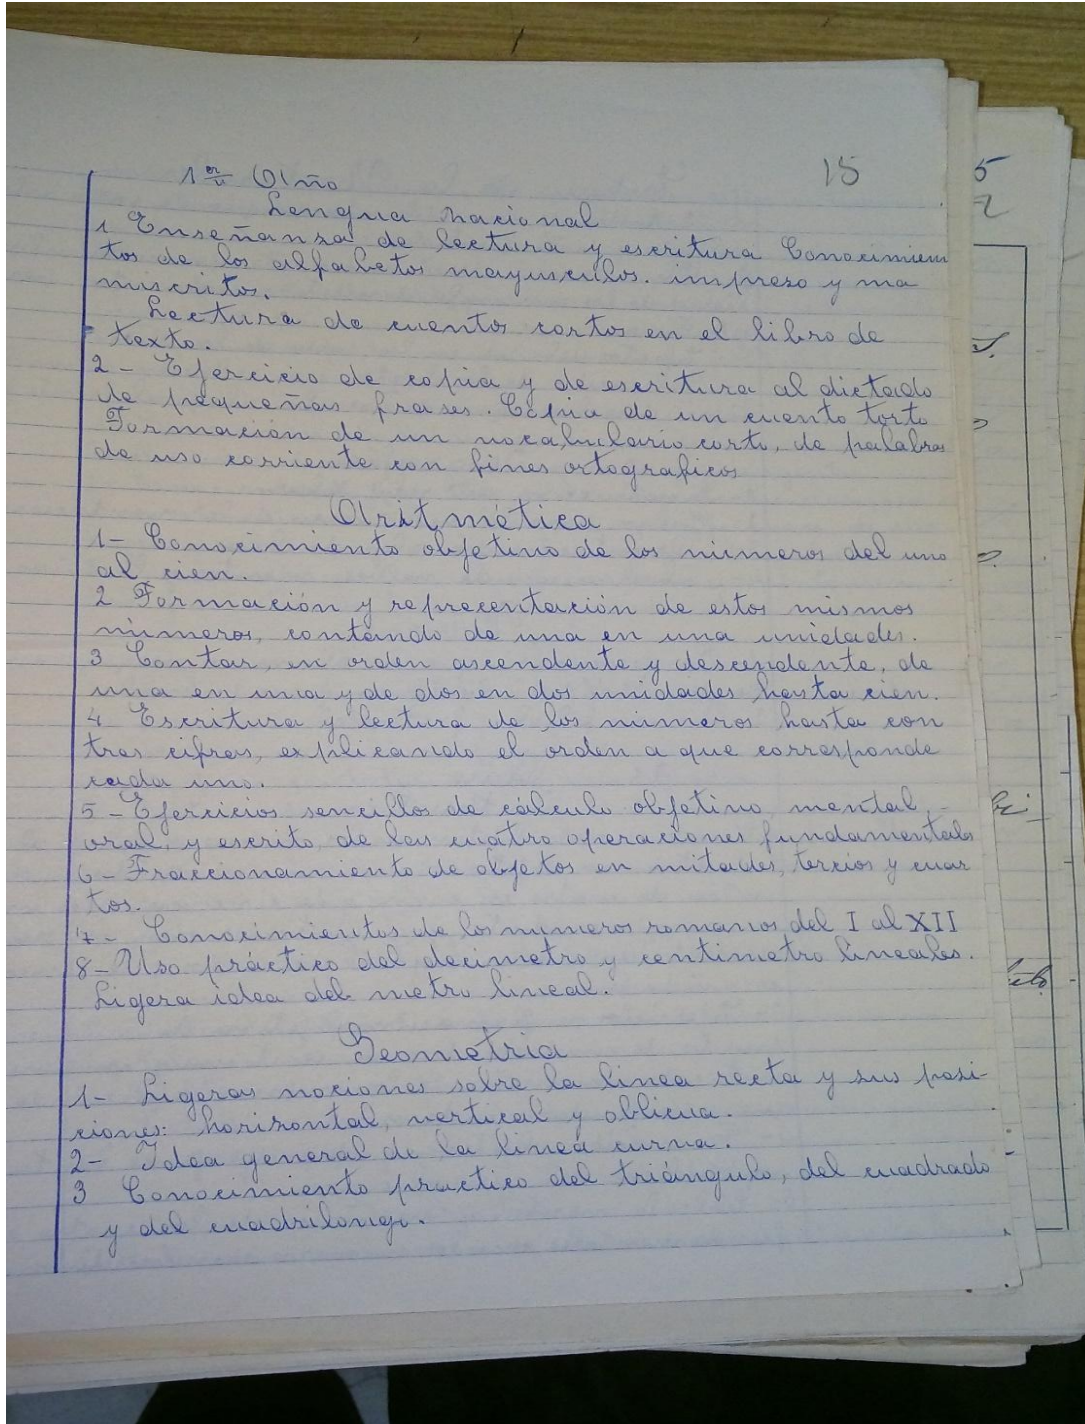 1er Año
15
Lengua nacional
1 Enseñanza de lectura y escritura Conocimien
tos de los alfabetos mayusculos. impreso y ma
nuscritos.
Lectura de cuentos cortos en el libro de
texto.
2 - Ejercicio de copia y de escritura al dictado
de pequeñas frases. Copia de un cuento torto
Formación de un vocabulario corto, de palabras
de uso corriente con fines ortograficos
Aritmética
1- Conocimiento objetivo de los números del uno
al cien.
2 Formación y reprecentación de estos mismos
números, contando de una en una unidades.
3 Contar, en orden ascendente y descendente, de
una en una y de dos en dos unidades hasta cien.
4 Escritura y lectura de los números hasta con
tres cifras, explicando el orden a que corresponde
cada uno.
5 - Ejercicios sencillos de cálculo objetivo, mental, -
oral, y escrito, de las cuatro operaciones fundamentales
6 - Fraccionamiento de objetos en mitades, tercios y cuar
tos.
7 - Conocimientos de los numeros romanos del I al XII
8 - Uso práctico del decimetro y centimetro lineales.
Ligera idea del metro lineal.
Geometria
1- Ligeras nociones sobre la linea recta y sus posi-
ciones: horizontal, vertical y oblicua.
2- Idea general de la linea curva.
3 Conocimiento practico del triángulo, del cuadrado
y del cuadrilongo.